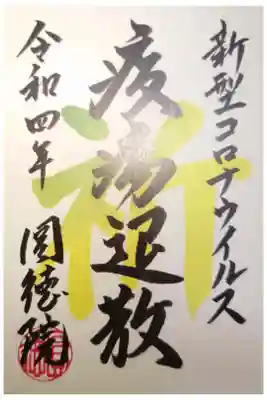 新型コロナウイルス
疫 退散
祈
令和四年 圓徳院